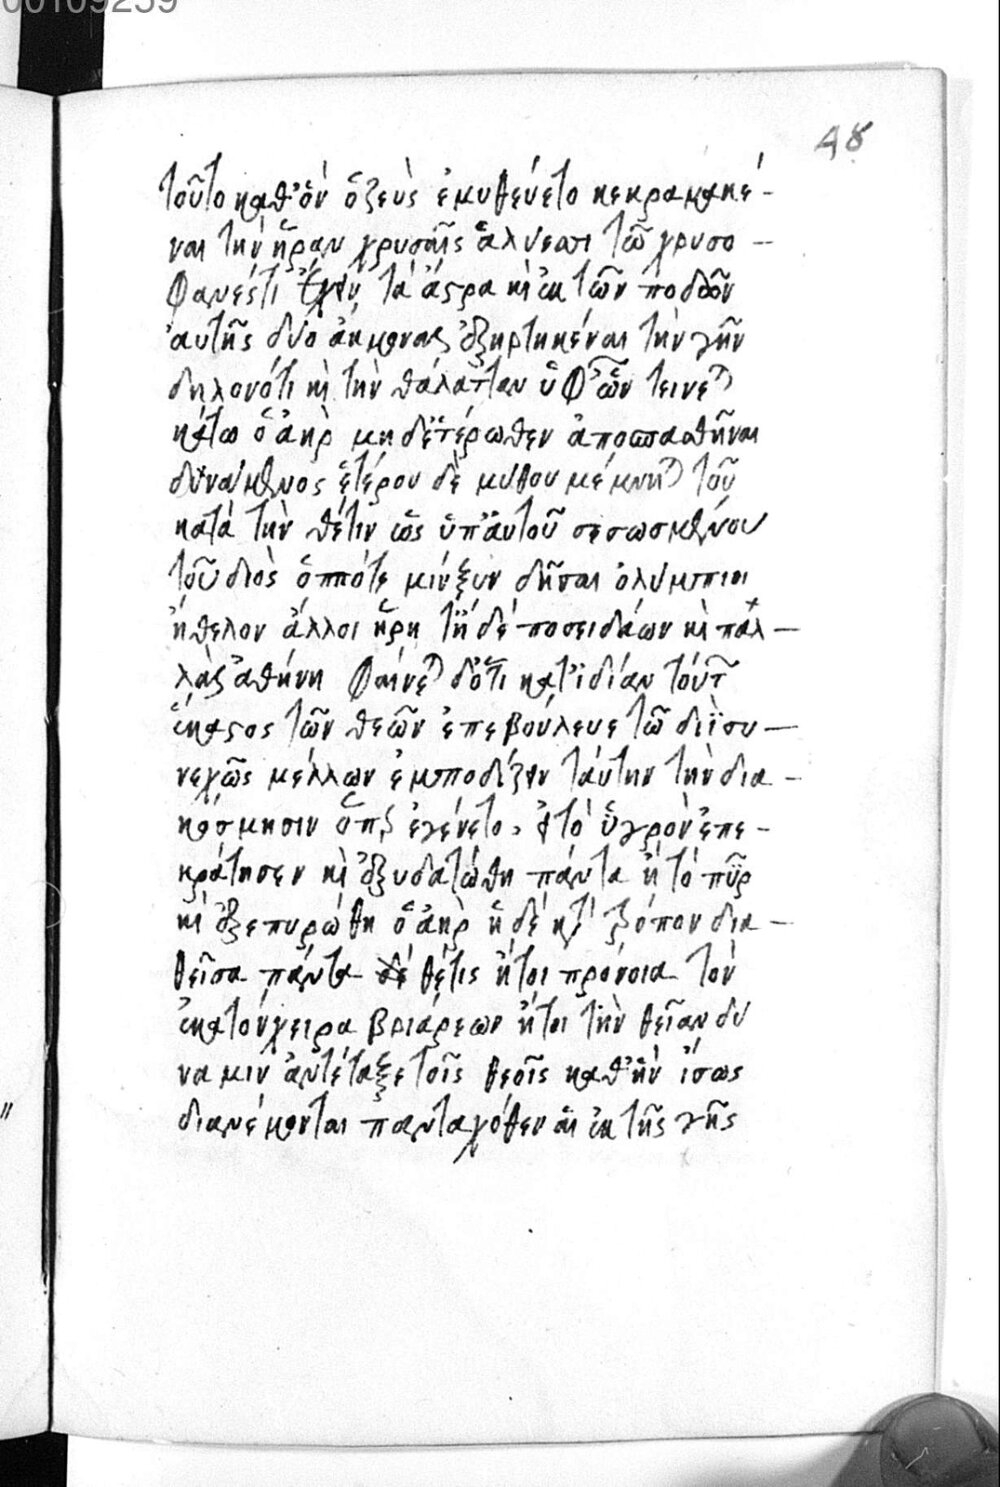 00109259
48
τοῦτο καθ' ὃν ὁ ζεὺς ἐμυθεύετο κεκραμακέ-
ναι τὴν ἥραν χρυσαῖς ἁλύσεσι τῶ χρυσο-
φανές τι ἔχειν τὰ ἄστρα κὶ ἐκ τῶν ποδῶν
αὐτῆς δύο ἄκμονας ἐξηρτηκέναι τὴν γῆν
δηλονότι κὶ τὴν θάλατταν ὑφ' ὧν τείνε
κάτω ὁ ἀὴρ μηδετέρωθεν ἀποσπασθῆναι
δυνάμενος ἑτέρου δὲ μύθου μέμνη τοῦ
κατὰ τὴν θέτιν ὡς ὑπ' αὐτοῦ σεσωσμένου
τοῦ διὸς ὁππότε μιν ξυνδῆσαι ὀλύμπιοι
ἤθελον ἄλλοι ἥρη τ' ἠδὲ ποσειδάων κὶ παλ-
λὰς ἀθήνη φαίνε δ' ὅτι κατ' ἰδίαν τούτ
ἕκαστος τῶν θεῶν ἐπεβούλευε τῶ διῒ συ-
νεχῶς μέλλων ἐμποδίζειν ταύτην τὴν δια-
κόσμησιν ὅπερ ἐγένετο, εἰ τὸ ὑγρὸν ἐπε-
κράτησεν κὶ ἐξυδατώθη πάντα ἢ τὸ πῦρ
κὶ ἐξεπυρώθη ὁ ἀὴρ ἡ δὲ κτ' τρόπον δια-
θεῖσα πάντα δὲ θέτις ἤτοι πρόνοια τὸν
ἑκατόνχειρα βριάρεων ἤτοι τὴν θεῖαν δύ
ναμιν ἀντέταξε τοῖς θεοῖς καθ' ἣν ἴσως
διανέμονται πανταχόθεν αἱ ἐκ τῆς γῆς